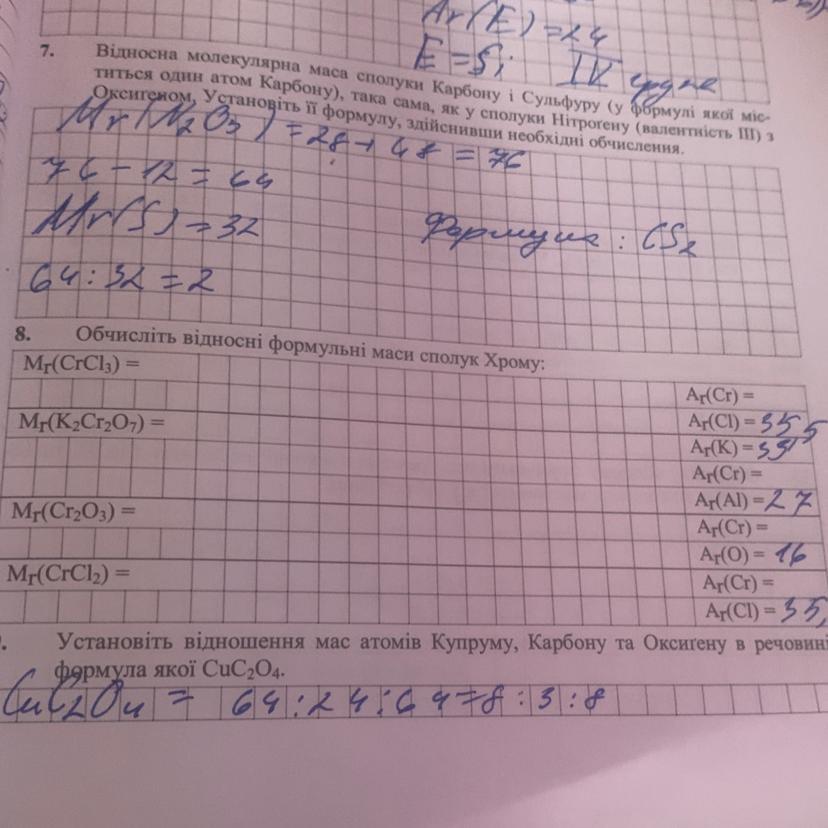 Ar(E)=24
E=Si IV група
7. Відносна молекулярна маса сполуки Карбону і Сульфуру (у формулі якої міс-
титься один атом Карбону), така сама, як у сполуки Нітрогену (валентність III) з
Оксигеном. Установіть її формулу, здійснивши необхідні обчислення.
Mr(N2O3)=28+48=76
76-12=64
Mr(S)=32
Формула: CS2
64:32=2
8. Обчисліть відносні формульні маси сполук Хрому:
Mr(CrCl3) =
Ar(Cr) =
Ar(Cl) = 35,5
Mr(K2Cr2O7) =
Ar(K) = 39
Ar(Cr) =
Ar(Al) = 27
Mr(Cr2O3) =
Ar(Cr) =
Ar(O) = 16
Mr(CrCl2) =
Ar(Cr) =
Ar(Cl) = 35,
Установіть відношення мас атомів Купруму, Карбону та Оксигену в речовині
формула якої CuC2O4.
CuC2O4 = 64:24:64=8:3:8